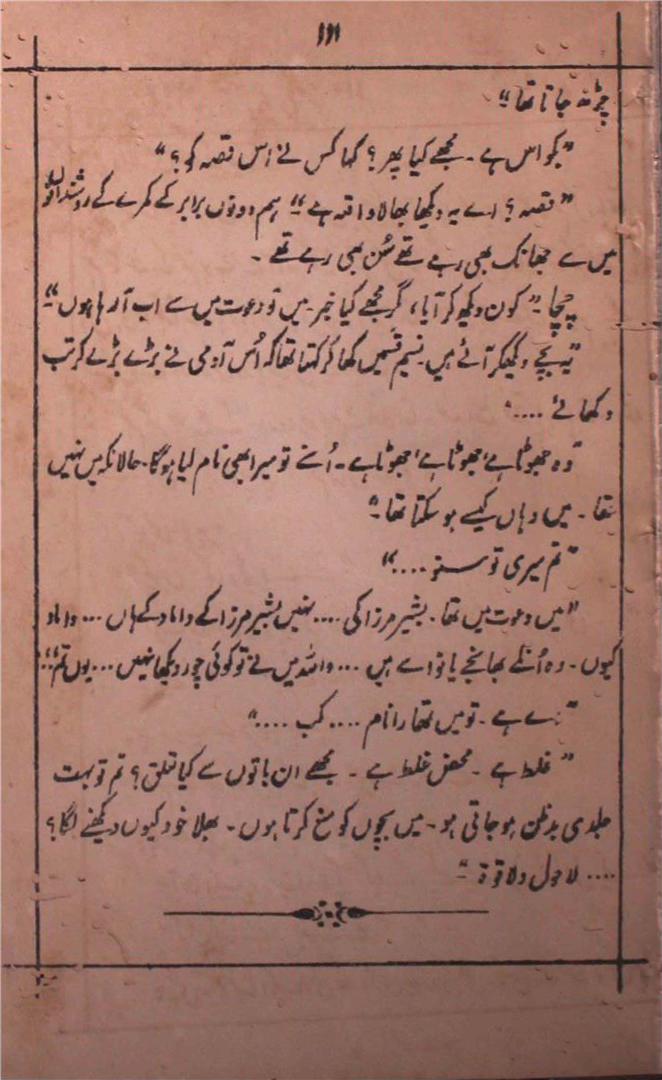 ۱۱۱
چڑھ جاتا تھا"
"بکواس ہے۔ مجھے کیا پھر؟ کہا کس نے اس قصہ کو؟"
"قصہ؟ اے یہ دیکھا بھالا واقعہ ہے" ہم دونوں برابر کے کمرے کے روشندانوں
میں سے جھانک بھی رہے تھے سُن بھی رہے تھے۔
چچا۔" کون دیکھ کر آیا، گر مجھے کیا خبر۔ میں تو دعوت میں سے اب آ رہا ہوں"
"یہ بچے دیکھکر آئے ہیں۔ نسیم قسمیں کھا کر کہتا تھا کہ اُس آدمی نے بڑے بڑے کرتب
دکھائے ....
"وہ جھوٹا ہے، جھوٹا ہے، جھوٹا ہے۔ اُسنے تو میرا بھی نام لیا ہوگا۔ حالانکہ میں نہیں
تھا۔ میں وہاں کیسے ہو سکتا تھا۔"
"تم میری تو سنو ...."
"میں دعوت میں تھا۔ بشیر مرزا کی .... نہیں بشیر مرزا کے داماد کے ہاں ... داماد
کیوں۔ وہ اُنکے بھانجے یا نواسے ہیں ... واللہ میں نے تو کوئی چور دیکھا نہیں ... یوں تم"
ہے ہے۔ تو میں تمہارا نام .... کب ...."
"غلط ہے۔ محض غلط ہے۔ مجھے ان باتوں سے کیا تعلق؟ تم تو بہت
جلدی بدظن ہو جاتی ہو۔ میں بچوں کو منع کرتا ہوں۔ بھلا خود کیوں دیکھنے لگا؟
.... لاحول ولا قوۃ۔"